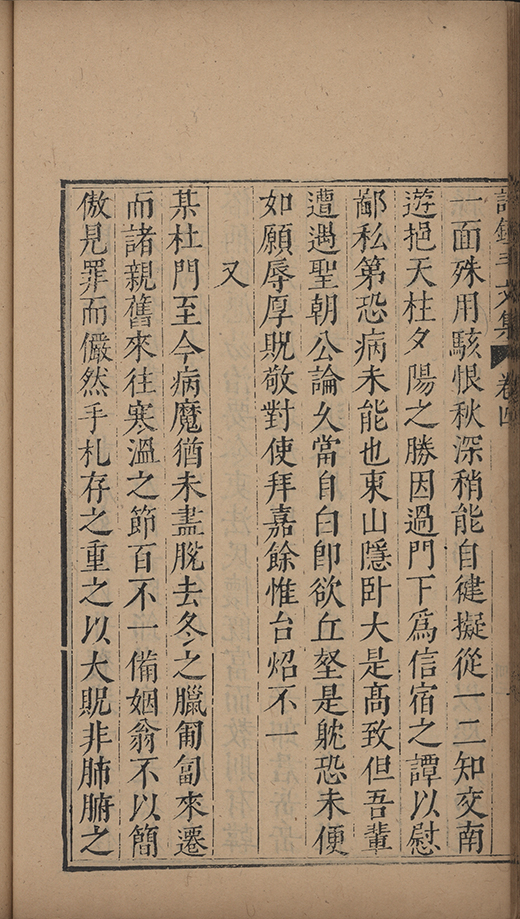 文集 卷四
一面殊用駭恨秋深稍能自健擬從一二知交南
遊挹天柱夕陽之勝因過門下爲信宿之譚以慰
鄙私第恐病未能也東山隱卧大是高致但吾輩
遭遇聖朝公論久當自白卽欲丘壑是躭恐未便
如願辱厚貺敬對使拜嘉餘惟台炤不一
又
某杜門至今病魔猶未盡脫去冬之臘匍匐來遷
而諸親舊來往寒溫之節百不一備姻翁不以簡
傲見罪而儼然手札存之重之以大貺非肺腑之